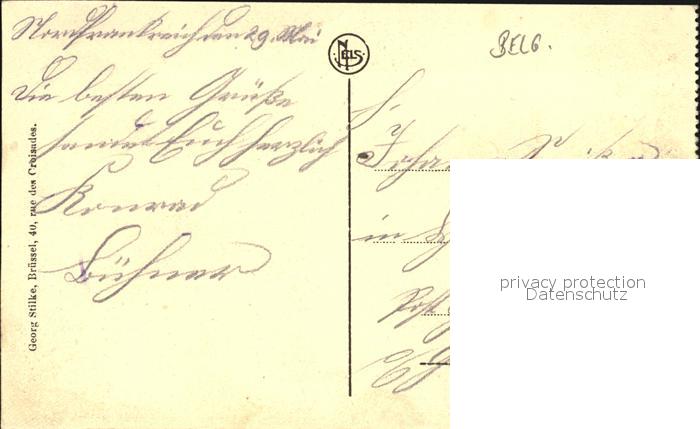 Nordfrankreich den 29. Mai
Die besten Grüße
sendet Euch herzlich
Konrad
Bühner
Georg Stilke, Brüssel, 40, rue des Croisades.
NELS
BELG.
in
Post
privacy protection
Datenschutz